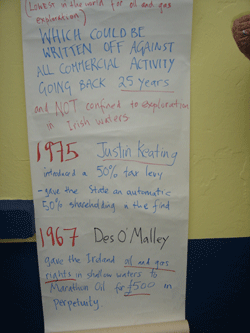 (Lowest in the world for oil and gas
exploration)
WHICH COULD BE
WRITTEN OFF AGAINST
ALL COMMERCIAL ACTIVITY
GOING BACK 25 years
and NOT confined to exploration
in Irish waters
1975 Justin Keating
introduced a 50% tax levy
- gave the State an automatic
50% shareholding in the find
1967 Des O'Malley
gave the Ireland oil and gas
rights in shallow waters to
Marathon Oil for £500 in
perpetuity.